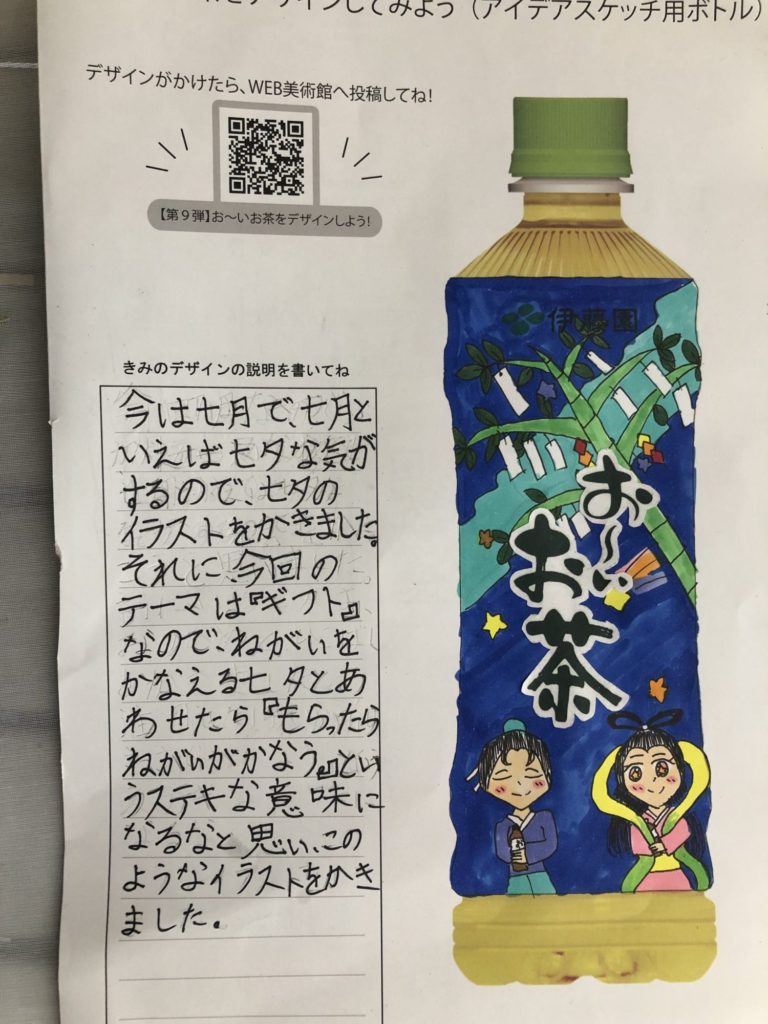 デザインしてみよう（アイデアスケッチ用ボトル）
デザインがかけたら、WEB美術館へ投稿してね！
【第９弾】お〜いお茶をデザインしよう！
きみのデザインの説明を書いてね
今は七月で、七月と
いえば七夕な気が
するので、七夕の
イラストをかきました。
それに、今回の
テーマは『ギフト』
なので、ねがいを
かなえる七夕とあ
わせたら『もらったら
ねがいがかなう』とい
うステキな意味に
なるなと思い、この
ようなイラストをかき
ました。
伊藤園
お〜い
お茶